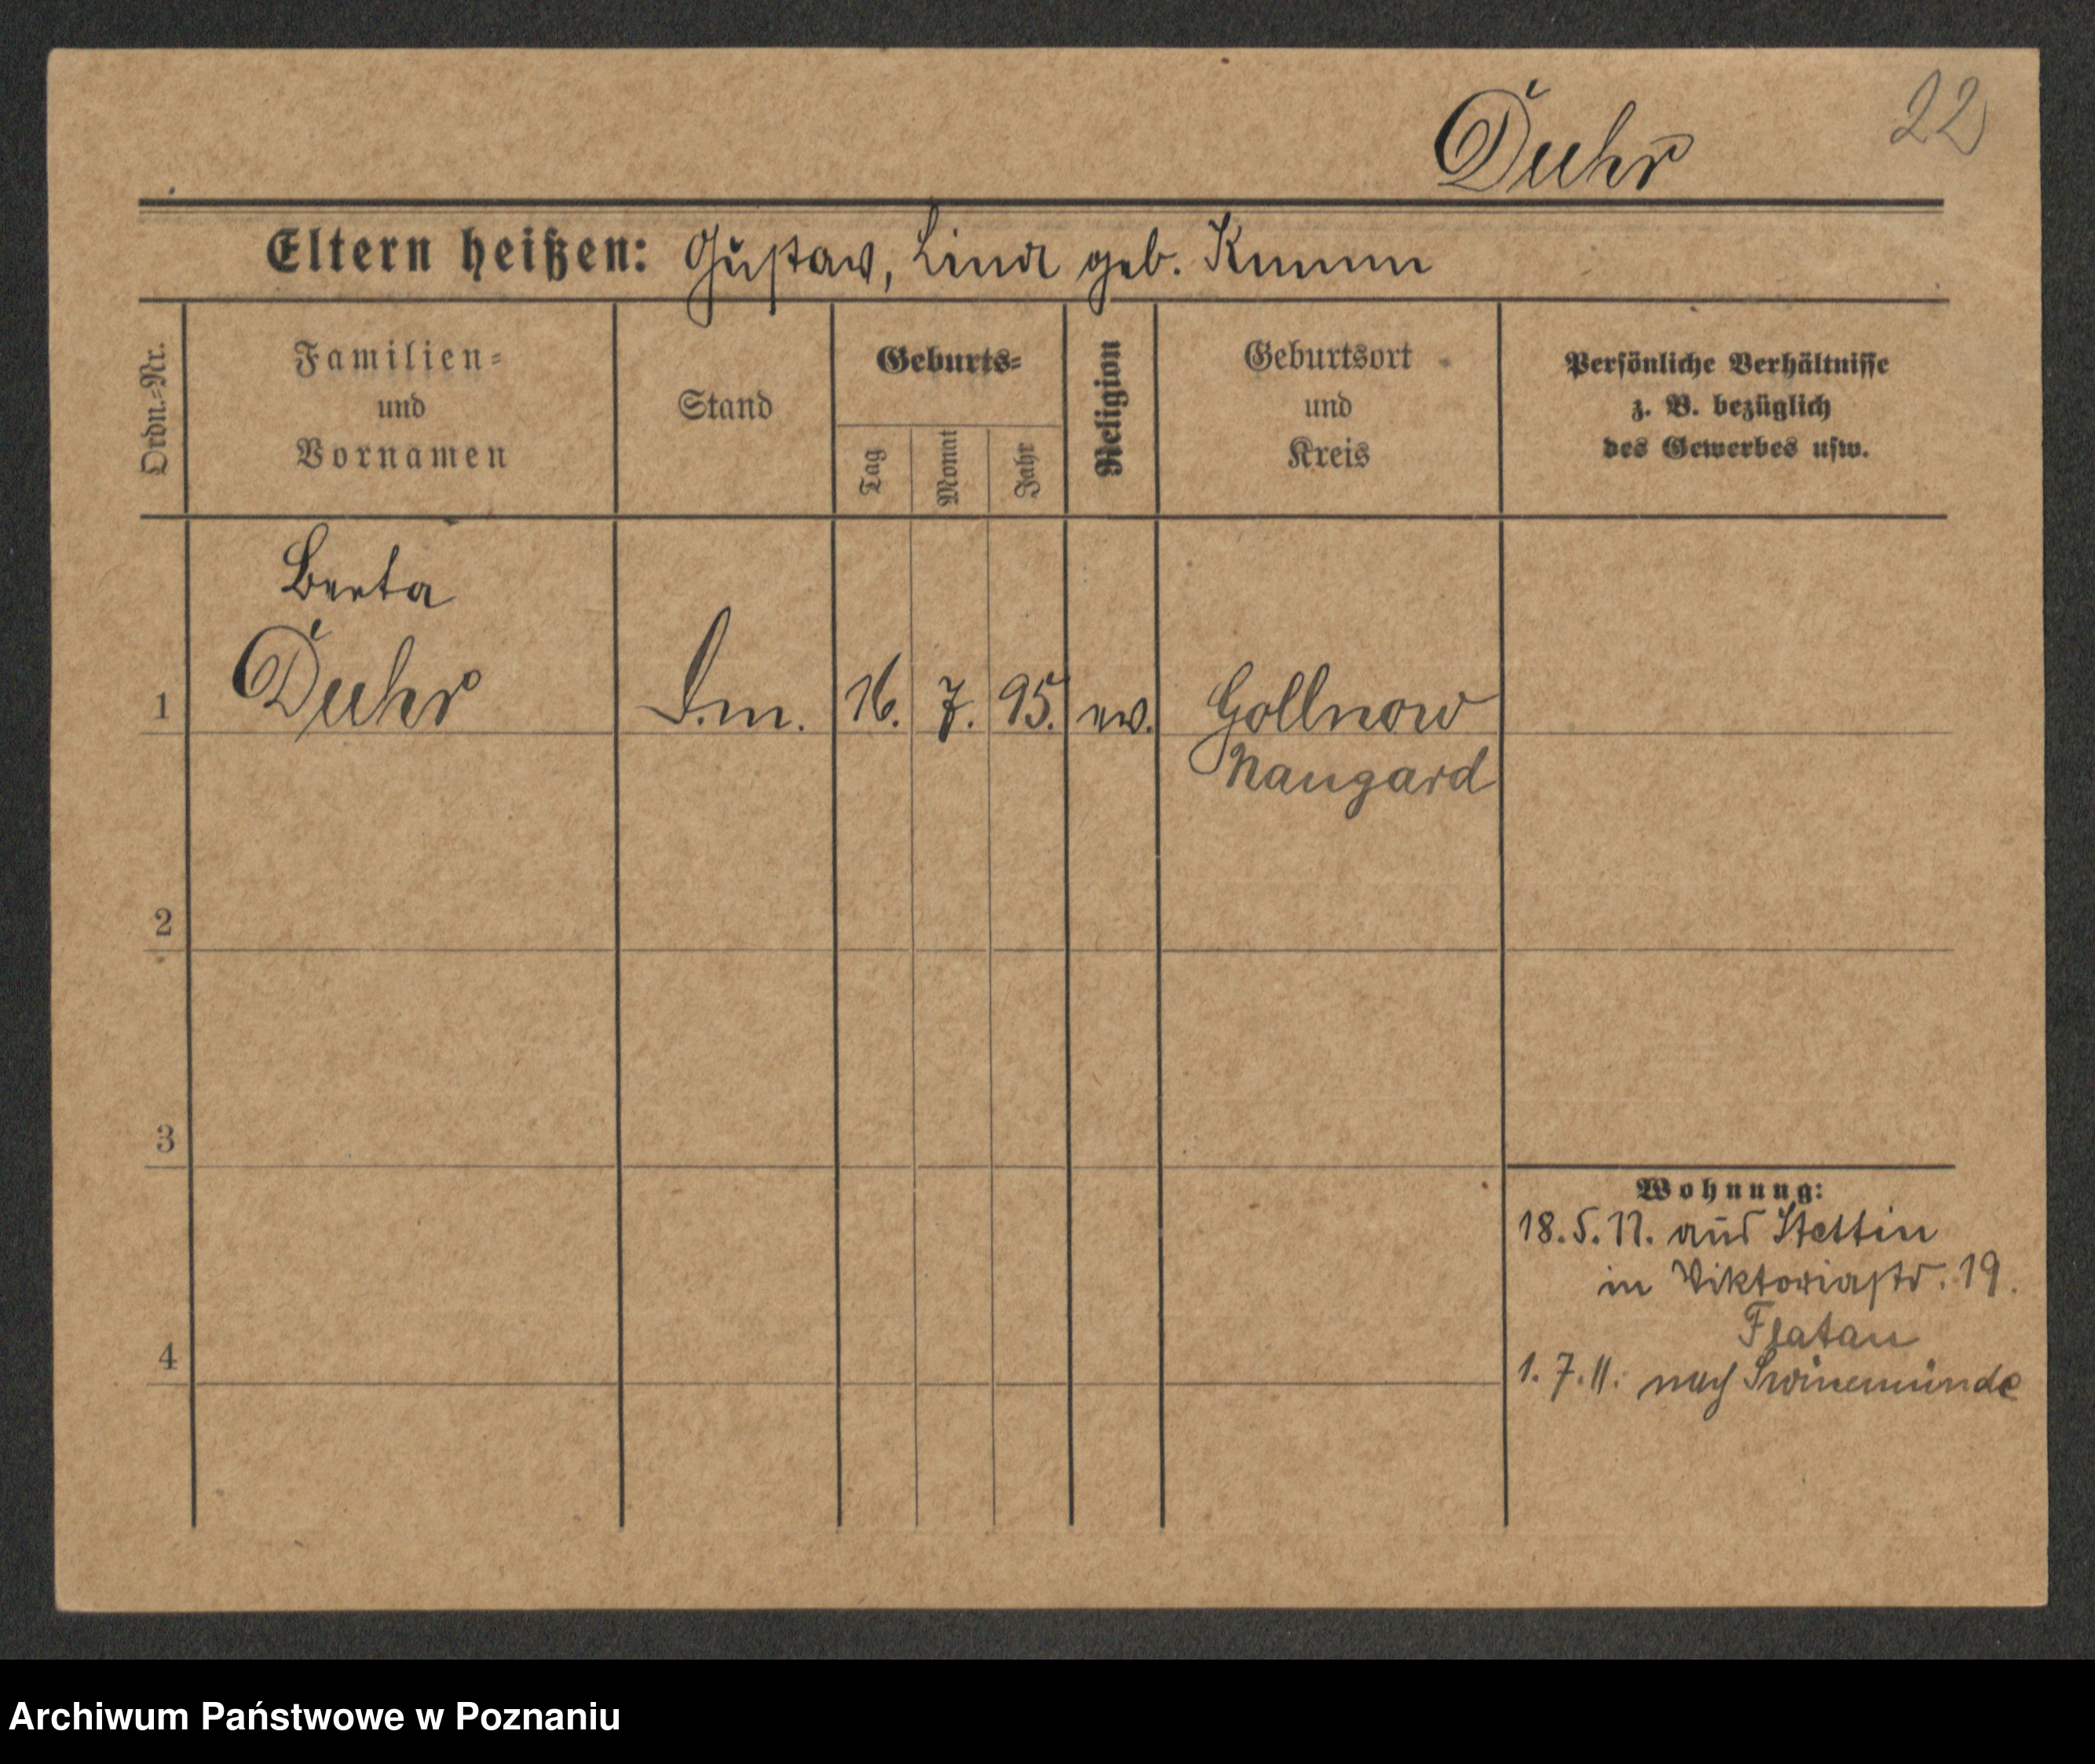 22
Duhr
Eltern heißen: Gustav, Lina geb. Krumm
Ordn.-Nr.
Familien-
und
Vornamen
Stand
Geburts-
Tag
Monat
Jahr
Religion
Geburtsort
und
Kreis
Persönliche Verhältnisse
z. B. bezüglich
des Gewerbes usw.
Berta
1 Duhr D.m. 16. 7. 95. ev. Gollnow
Naugard
2
3
4
Wohnung:
18.5.11. aus Stettin
in Viktoriastr. 19.
Flatau
1.7.11. nach Swinemünde
Archiwum Państwowe w Poznaniu